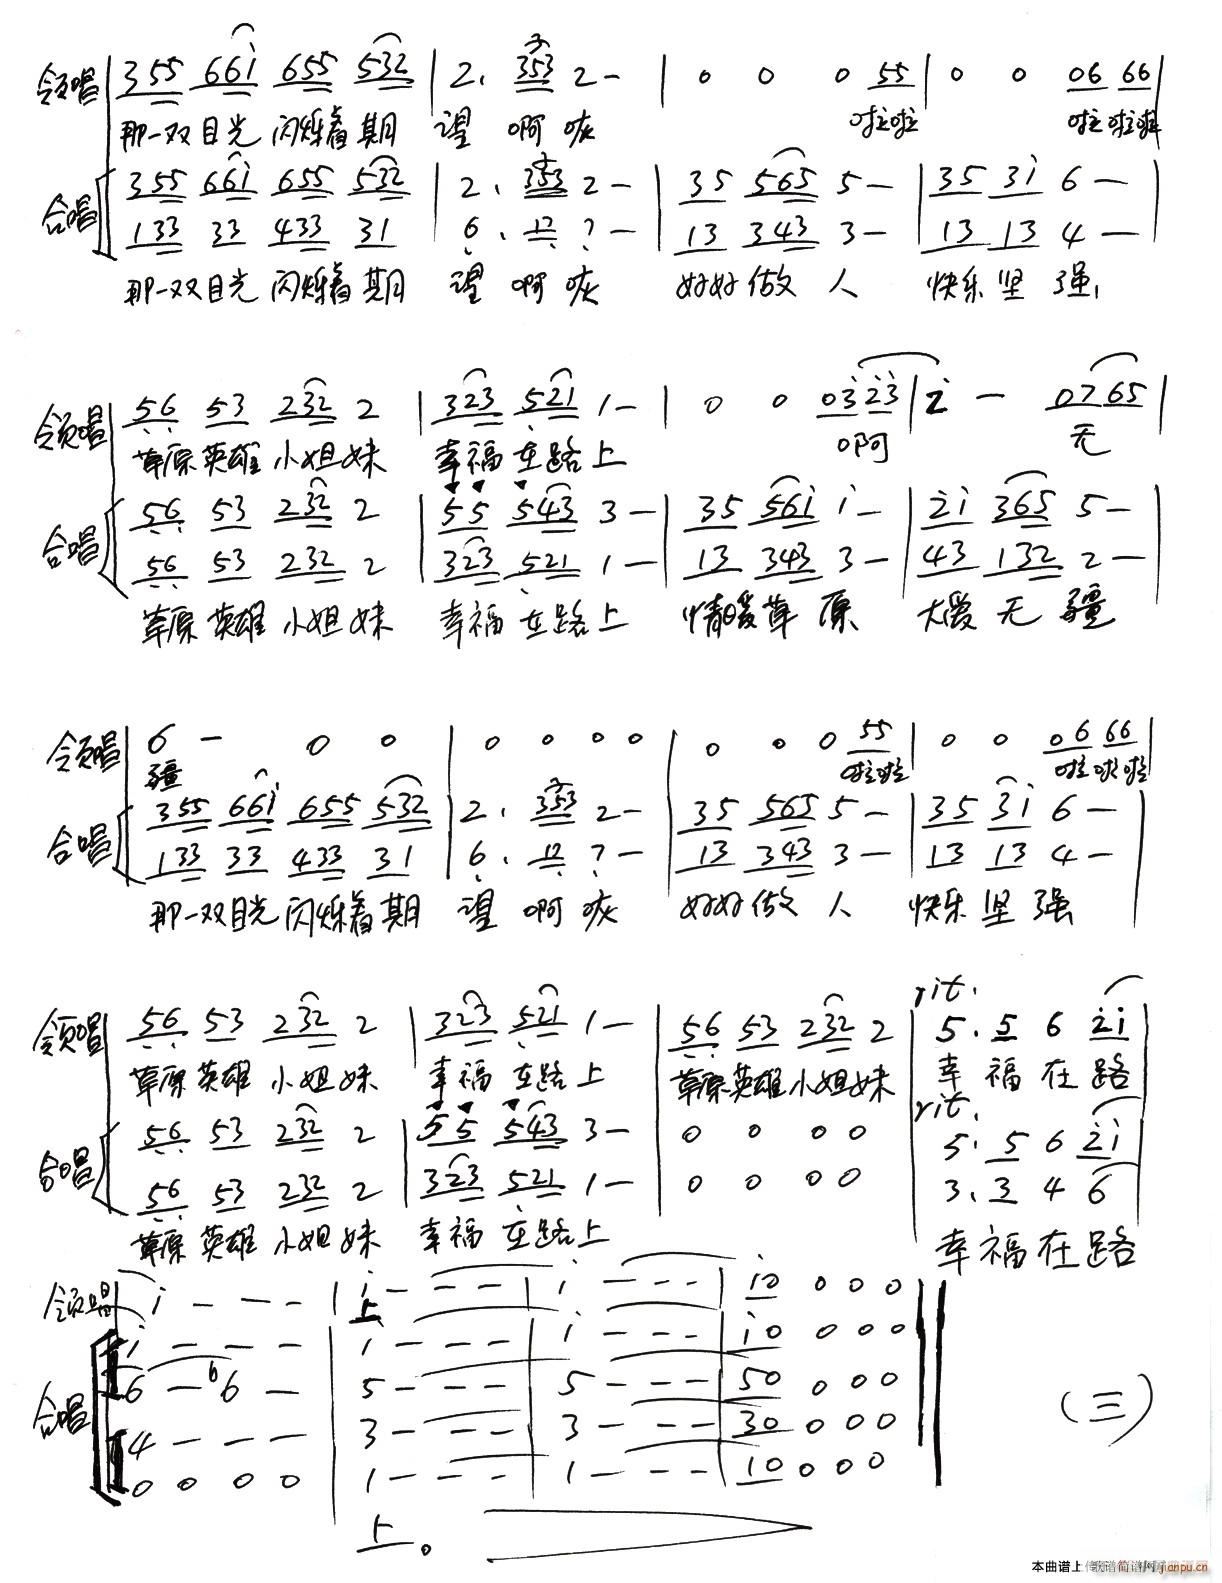 领唱 | 355 66i 655 532 | 2. 353 2 - | 0 0 0 55 | 0 0 06 66 |
那一双目光 闪烁着 期 望 啊 唉 啦啦 啦啦啦
合唱 355 66i 655 532 | 2. 353 2 - | 35 565 5 - | 35 3i 6 - |
133 33 433 31 | 6. 12 7 - | 13 343 3 - | 13 13 4 - |
那一双目光 闪烁着 期 望 啊 唉 好好做 人 快乐 坚 强,
领唱 | 56 53 232 2 | 323 521 1 - | 0 0 03 23 | 2 - 0765 |
草原 英雄 小姐 妹 幸福 在路 上 啊 无
合唱 56 53 232 2 | 55 543 3 - | 35 56i i - | 2i 365 5 - |
56 53 232 2 | 323 521 1 - | 13 343 3 - | 43 132 2 - |
草原 英雄 小姐 妹 幸福 在路 上 情暖草 原 大爱 无 疆
领唱 | 6 - 0 0 | 0 0 0 0 | 0 0 0 55 | 0 0 06 66 |
疆 啦啦 啦啦啦
合唱 355 66i 655 532 | 2. 353 2 - | 35 565 5 - | 35 3i 6 - |
133 33 433 31 | 6. 12 7 - | 13 343 3 - | 13 13 4 - |
那一双目光 闪烁着 期 望 啊 唉 好好 做 人 快乐 坚 强
rit.
领唱 | 56 53 232 2 | 323 521 1 - | 56 53 232 2 | 5. 5 6 2i |
草原 英雄 小姐 妹 幸福 在路 上 草原英雄小姐妹 幸 福 在 路
rit.
合唱 56 53 232 2 | 55 543 3 - | 0 0 0 0 | 5. 5 6 2i |
56 53 232 2 | 323 521 1 - | 0 0 0 0 | 3. 3 4 6 |
草原 英雄 小姐 妹 幸福 在路 上 幸 福 在 路
领唱 | i - - - | i - - - | i - - - | i0 0 0 0 ||
上
合唱 i - - - | 1 - - - | i - - - | i0 0 0 0 ||
6 - 6 6 - | 5 - - - | 5 - - - | 50 0 0 0 ||
4 - - - | 3 - - - | 3 - - - | 30 0 0 0 ||
0 0 0 0 | 1 - - - | 1 - - - | 10 0 0 0 ||
上。
(三)
本曲谱上传于 简谱网 jianpu.cn